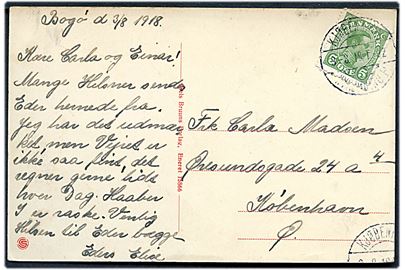 Bogø d 3/8 1918.
Kære Carla og Einar!
Mange Hilsner sendes
Eder hernede fra.
Jeg har det udmær
ket men Vejret er
ikke saa fint, det
regner gerne lidt
hver Dag. Haaber
I er raske. Venlig
Hilsen til Eder begge
Eders Elise.
Eneret 15866
Frk Carla Madsen
Øresundsgade 24 a 4
København
Ø.
KJØBENH
5 5
KJØBENH